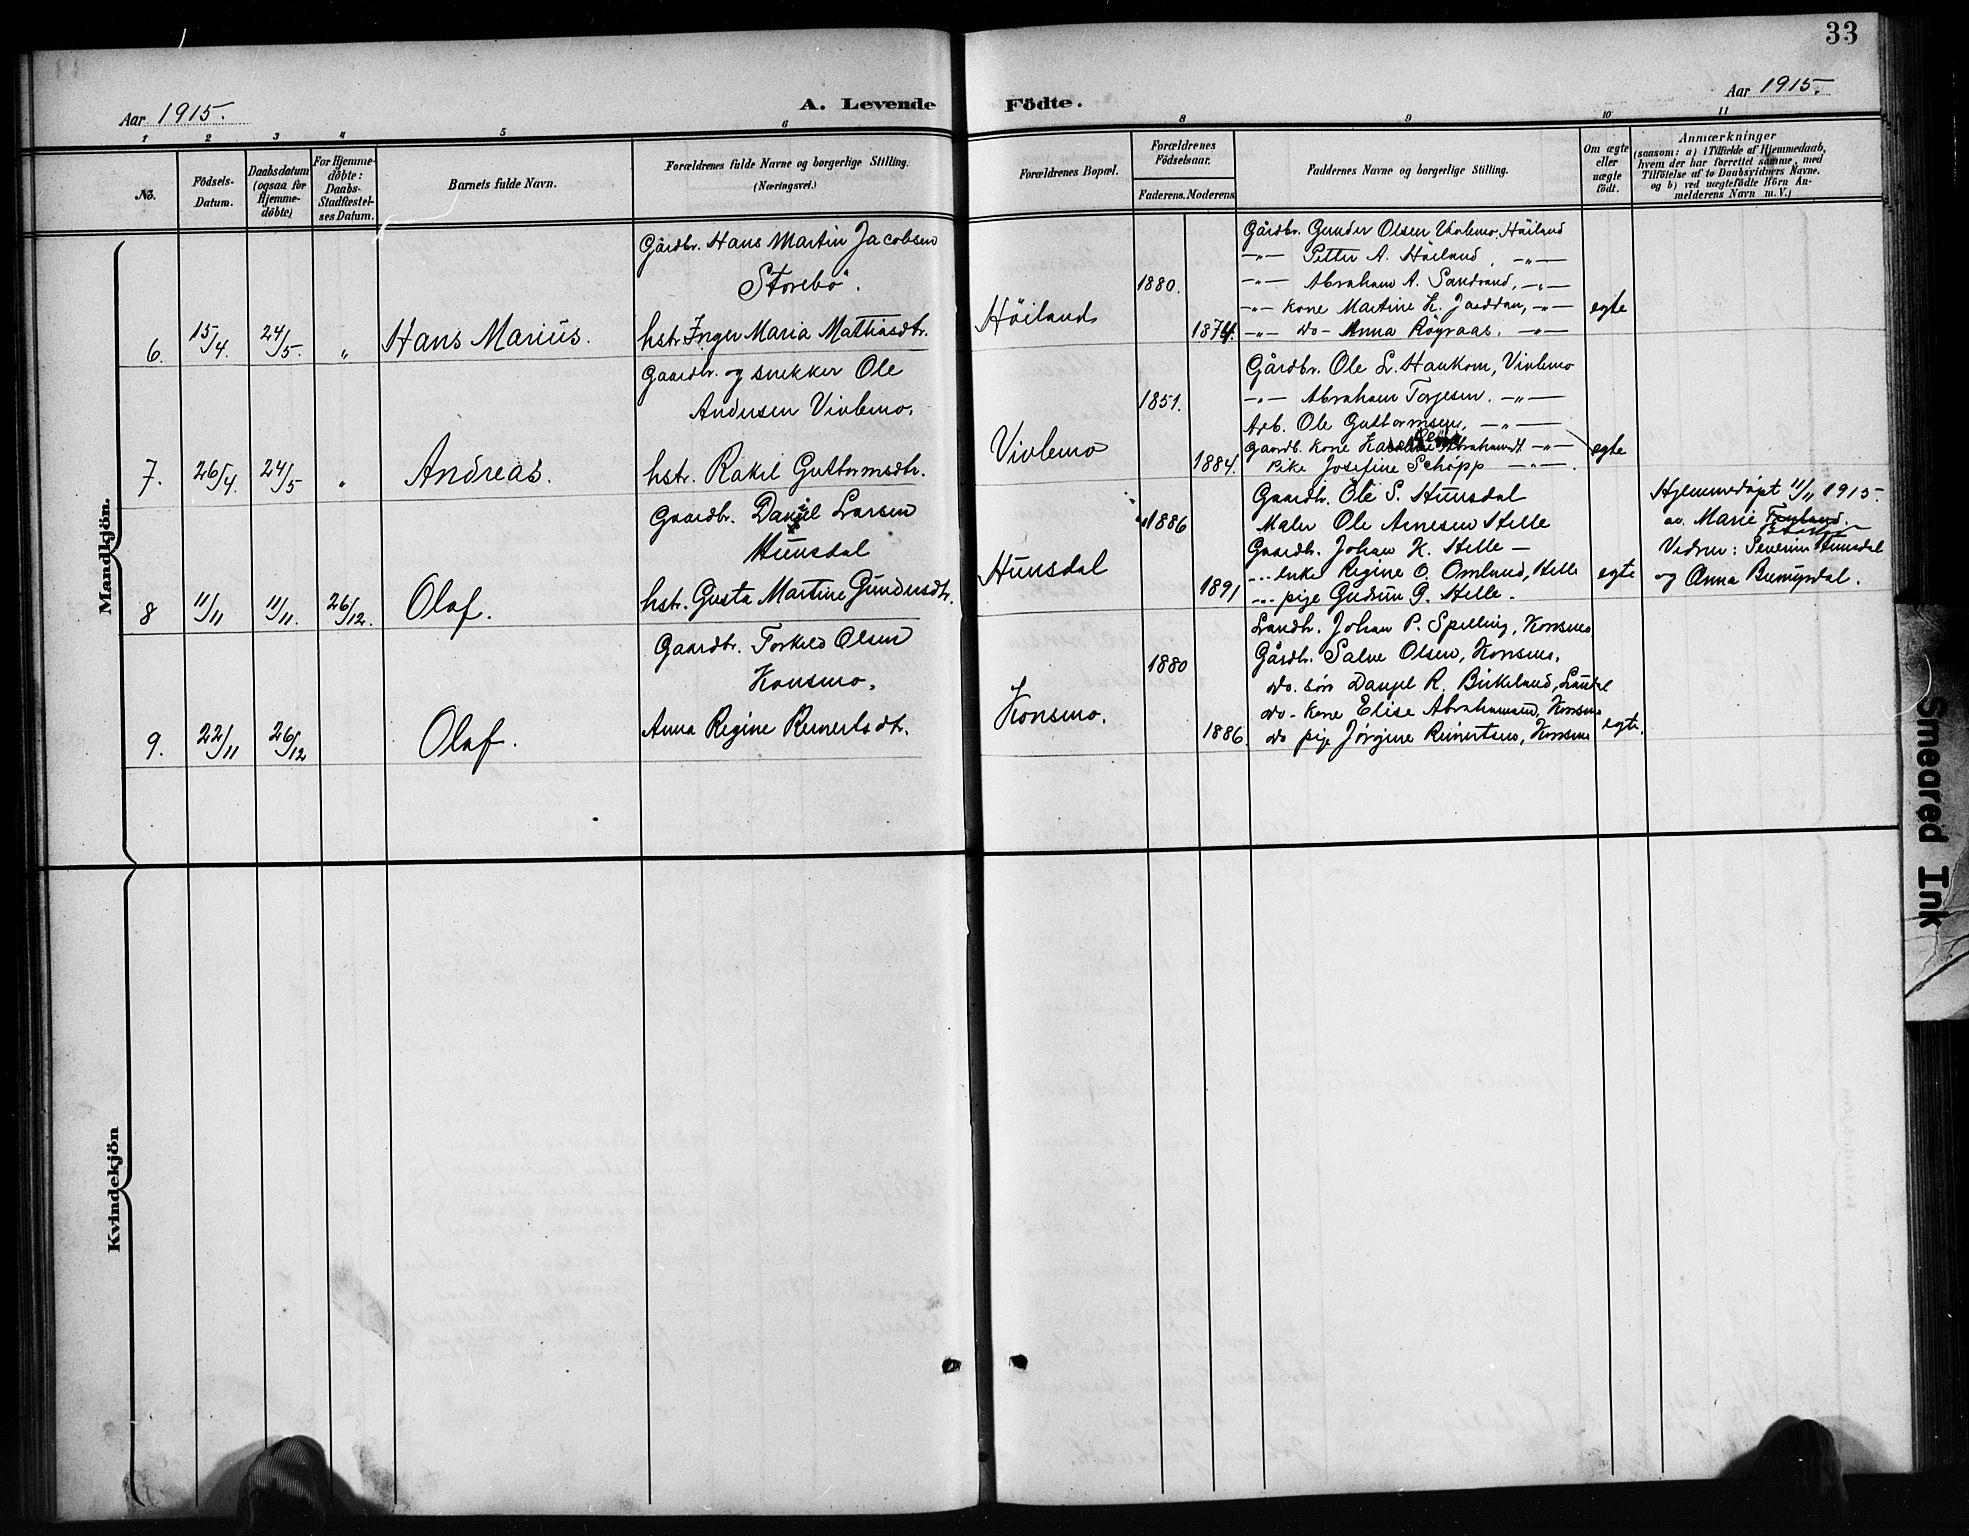 33
Aar 1915.
A. Levende
Födte.
Aar 1915.
1 2 3 4 5 6
8 9 10 11
No.
Födsels-
Datum.
Daabsdatum
(ogsaa for
Hjemme-
döbte)
For Hjemme-
döbte:
Daabs-
Stadfæstel-
ses Datum.
Barnets fulde Navn.
Forældrenes fulde Navne og borgerlige Stilling.
(Næringsvei.)
Forældrenes Bopæl.
Forældrenes
Födselsaar.
Faderens. Moderens
Faddernes Navne og borgerlige Stilling.
Om ægte
eller
uægte
födt.
Anmærkninger
(saasom: a) i Tilfælde af Hjemmedaab,
hvem der har forrettet samme, med
Tilföielse af to Daabsvidners Navne.
og b) ved uægtefödte Börn An-
melderens Navn m. V.)
Mandkjön.
6. 15/4. 24/5. " Hans Marius.
Gårdbr. Hans Martin Jacobsen
Storebö.
hstr. Inger Maria Mathiasdtr.
Höiland
1880.
1874.
Gårdbr. Gunder Olsen Vivlemo. Höiland
-"- Petter A. Höiland. -"-
-"- Abraham A. Sandvand, -"-
-"- kone Martine K. Jarddan, -"-
-"- do- Anna Röyraas. -"-
egte
7. 26/4. 24/5 " Andreas.
Gaardbr. og snekker Ole
Andersen Vivlemo.
hstr. Rakel Guttormsdtr.
Vivlemo
1851.
1884.
Gårdbr. Ole Lr. Haukom, Vivlemo
-"- Abraham Torjesen. -"-
Arb. Ole Guttormsen, -"-
Gaardb. kone Abrahamsdt -"-
Pike Josefine Schöpp -"-.
egte
8 11/11 11/11. 26/12. Olaf.
Gaardbr. Daniel Larsen
Hunsdal
hstr. Gusta Martine Gundersdtr.
Hunsdal
1886
1891
Gaardbr. Ole S. Hunsdal
Maler Ole Arnesen Helle
Gaardbr. Johan K. Helle -
... enke Regine O. Omlund, Helle
... pige Gudrun G. Helle.
egte
Hjemmedöpt 11/11 1915.
av Marie
Vidner: Severine Hunsdal
og Anna
9. 22/11 26/12 Olaf.
Gaardbr. Torkild Olsen
Konsmo.
Anna Regine Reinertsdtr.
Konsmo.
1880
1886.
Landh. Johan P. Spilling, Konsmo
Gårdbr. Salve Olsen, Konsmo.
do. sön Danjel R. Birkeland, Laudal
do- kone Elise Abrahamsen, Konsmo
do pige Jörgine Reinertsen, Konsmo
egte.
Kvindekjön
Smeared Ink